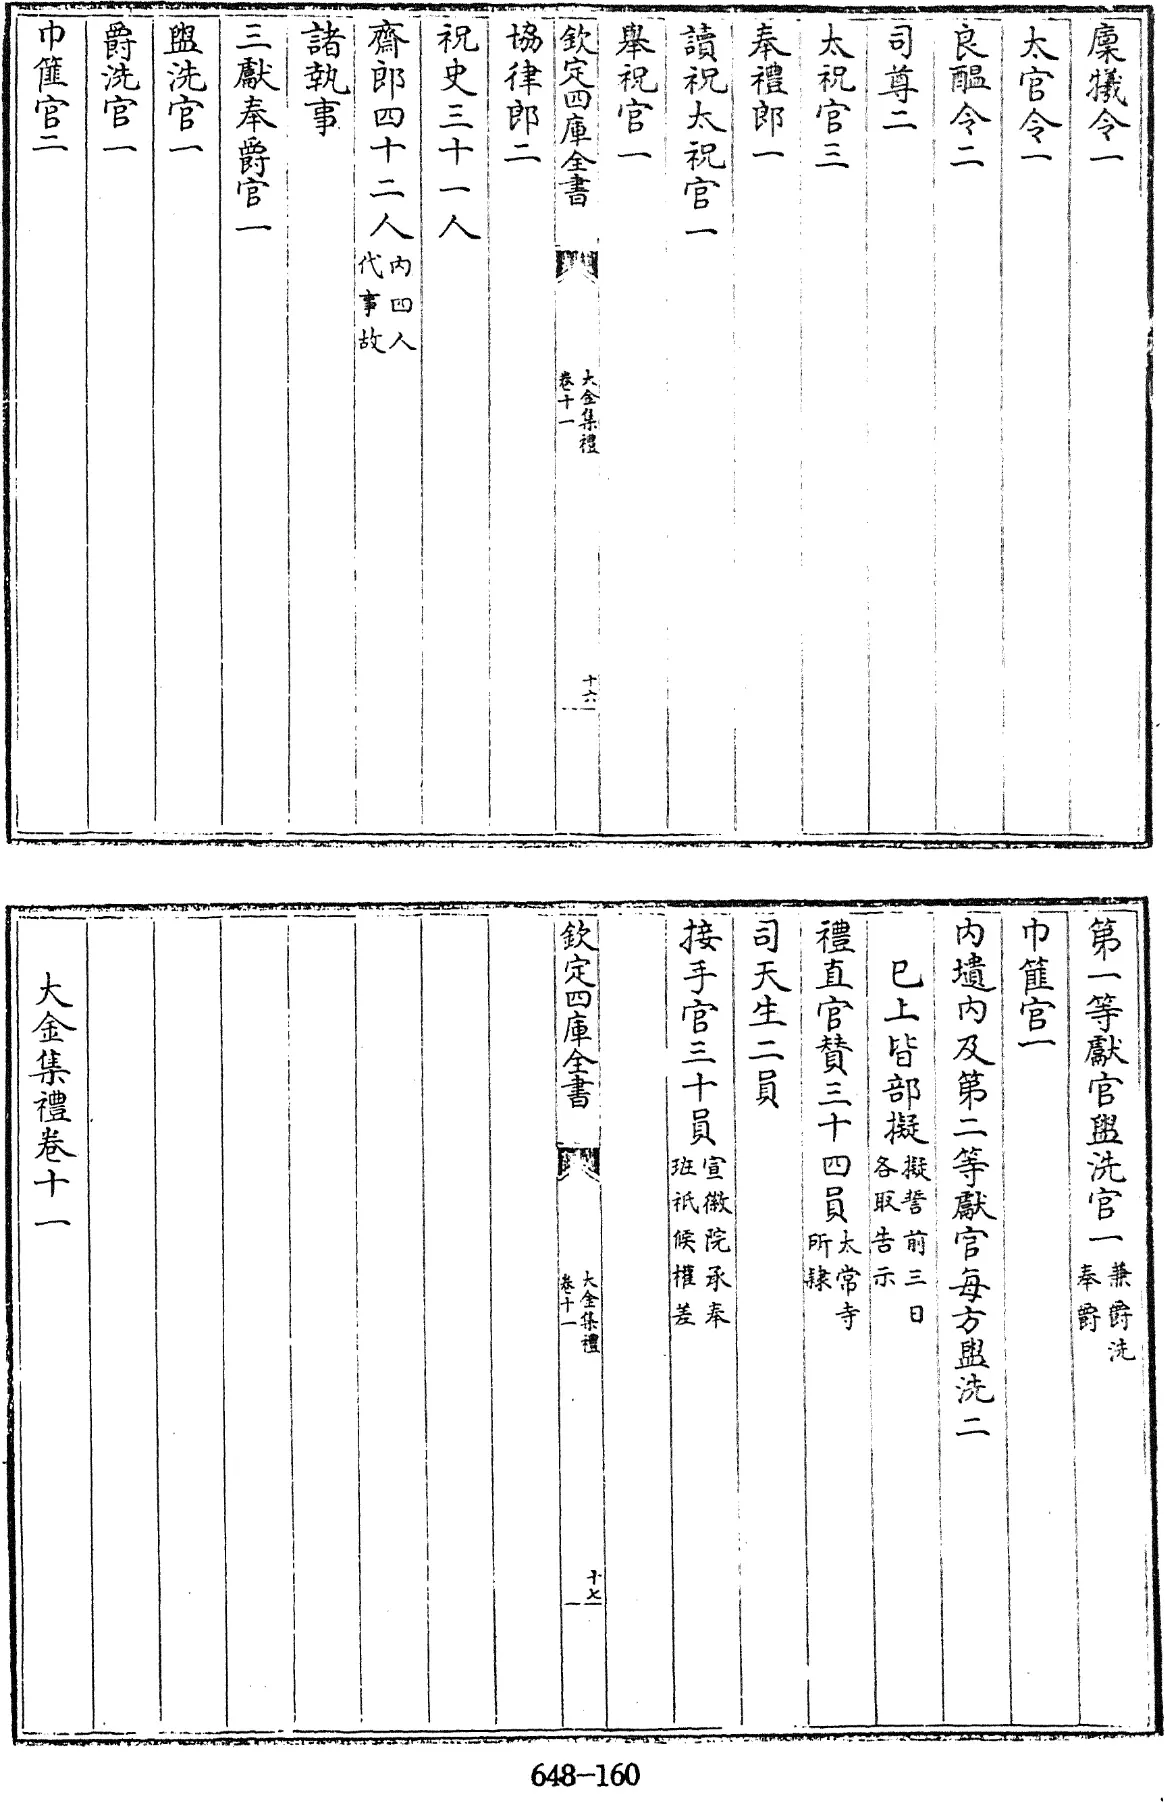 廩犧令一
太官令一
良醖令二
司尊二
太祝官三
奉禮郎一
讀祝太祝官一
舉祝官一
欽定四庫全書
大金集禮
卷十一
十六
協律郎二
祝史三十一人
齋郎四十二人內四人代事故
諸執事
三獻奉爵官一
盥洗官一
爵洗官一
巾篚官二
第一等獻官盥洗官一兼爵洗奉爵
巾篚官一
內壝內及第二等獻官每方盥洗二
已上皆部擬擬誓前三日各取告示
禮直官贊三十四員太常寺所隸
司天生二員
接手官三十員宣徽院承奉班祇候權差
欽定四庫全書
大金集禮
卷十一
十七
大金集禮卷十一
648-160